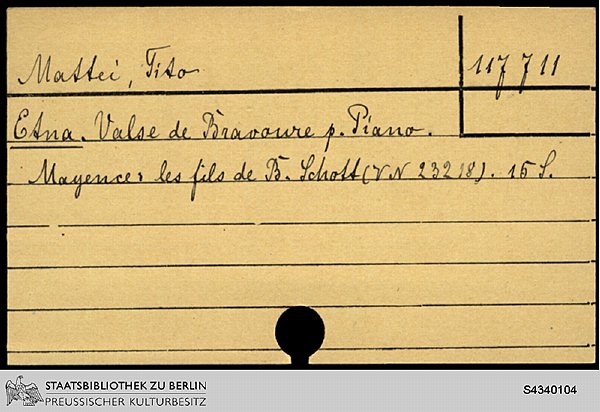 Mattei, Tito
117 711
Etna. Valse de Bravoure p. Piano.
Mayence: les fils de B. Schott (VN 23218). 15 S.
STAATSBIBLIOTHEK ZU BERLIN
PREUSSISCHER KULTURBESITZ
S4340104